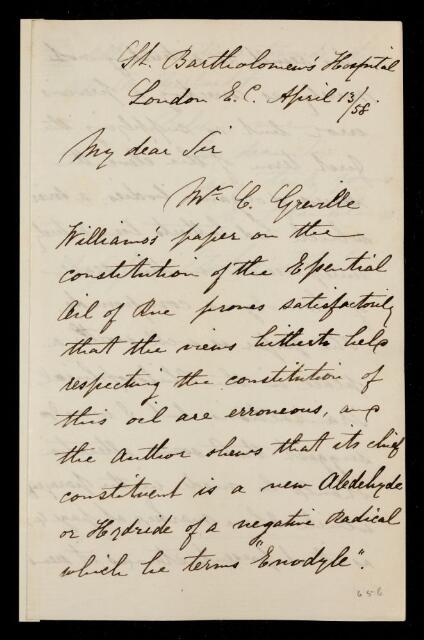 St. Bartholomew's Hospital
London E.C. April 13/58
My dear Sir
Mr. C. Greville
Williams's paper on the
constitution of the Essential
Oil of Rue proves satisfactorily
that the views hitherto held
respecting the constitution of
this oil are erroneous, and
the Author shews that its chief
constituent is a new Aldehyde
or Hydride of a negative Radical
which he terms "Enodyle".
656